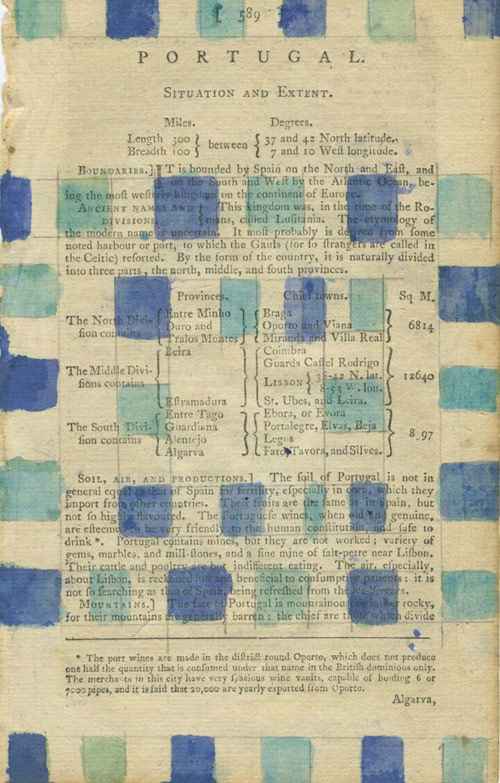 [ 589
PORTUGAL.
SITUATION AND EXTENT.
Miles. Degrees.
Length 300 } between { 37 and 42 North latitude.
Breadth 100 } between { 7 and 10 Weſt longitude.
BOUNDARIES.] IT is bounded by Spain on the North and Eaſt, and
on the South and Weſt by the Atlantic Ocean, be-
ing the moſt weſterly kingdom on the continent of Europe.
ANCIENT NAMES AND } This kingdom was, in the time of the Ro-
DIVISIONS. } mans, called Luſitania. The etymology of
the modern name is uncertain. It moſt probably is derived from ſome
noted harbour or port, to which the Gauls (for ſo ſtrangers are called in
the Celtic) reſorted. By the form of the country, it is naturally divided
into three parts, the north, middle, and ſouth provinces.
Provinces. Chief towns. Sq M.
The North Divi-
ſion contains { Entre Minho
Duro and
Tralos Montes } { Braga
Oporto and Viana
Miranda and Villa Real } 6814
The Middle Divi-
ſions contains { Beira
Eſtramadura } { Coimbra
Guarda Caſtel Rodrigo
LISBON { 38-42 N. lat.
8-53 W. lon.
St. Ubes, and Leira. } 12640
The South Divi-
ſion contains { Entre Tago
Guardiana
Alentejo
Algarva } { Ebora, or Evora
Portalegre, Elvas, Beja
Legos
Faro, Tavora, and Silves. } 8,97
SOIL, AIR, AND PRODUCTIONS.] The ſoil of Portugal is not in
general equal to that of Spain for fertility, eſpecially in corn, which they
import from other countries. Their fruits are the ſame as in Spain, but
not ſo highly flavoured. The Portugueſe wines, when old and genuine,
are eſteemed to be very friendly to the human conſtitution, and ſafe to
drink *. Portugal contains mines, but they are not worked; variety of
gems, marbles, and mill-ſtones, and a fine mine of ſalt-petre near Liſbon.
Their cattle and poultry are but indifferent eating. The air, eſpecially,
about Liſbon, is reckoned ſoft and beneficial to conſumptive patients: it is
not ſo ſearching as that of Spain, being refreſhed from the ſea-breezes.
MOUNTAINS.] The face of Portugal is mountainous, or rather rocky,
for their mountains are generally barren: the chief are thoſe which divide
* The port wines are made in the diſtrict round Oporto, which does not produce
one half the quantity that is conſumed under that name in the Britiſh dominions only.
The merchants in this city have very ſpacious wine vaults, capable of holding 6 or
7000 pipes, and it is ſaid that 20,000 are yearly exported from Oporto.
Algarva,